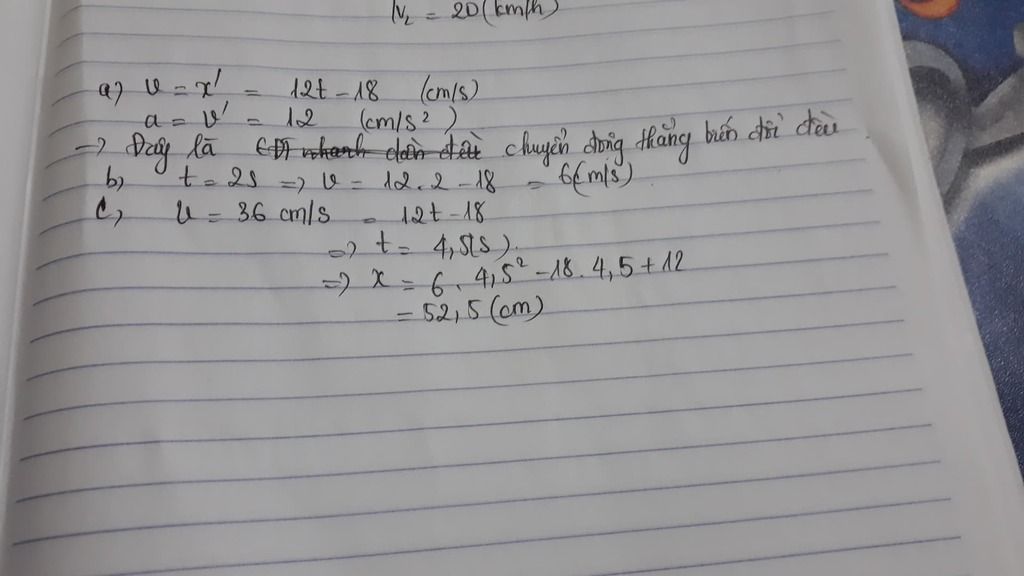 N₂ = 20 (km/h)
a) v = x' = 12t - 18 (cm/s)
a = v' = 12 (cm/s²)
→ Đây là CĐ nhanh dần đều chuyển động thẳng biến đổi đều
b, t = 2s => v = 12.2 - 18 = 6(m/s)
c, v = 36 cm/s = 12t - 18
=> t = 4,5(s).
=> x = 6 . 4,5² - 18 . 4,5 + 12
= 52,5 (cm)